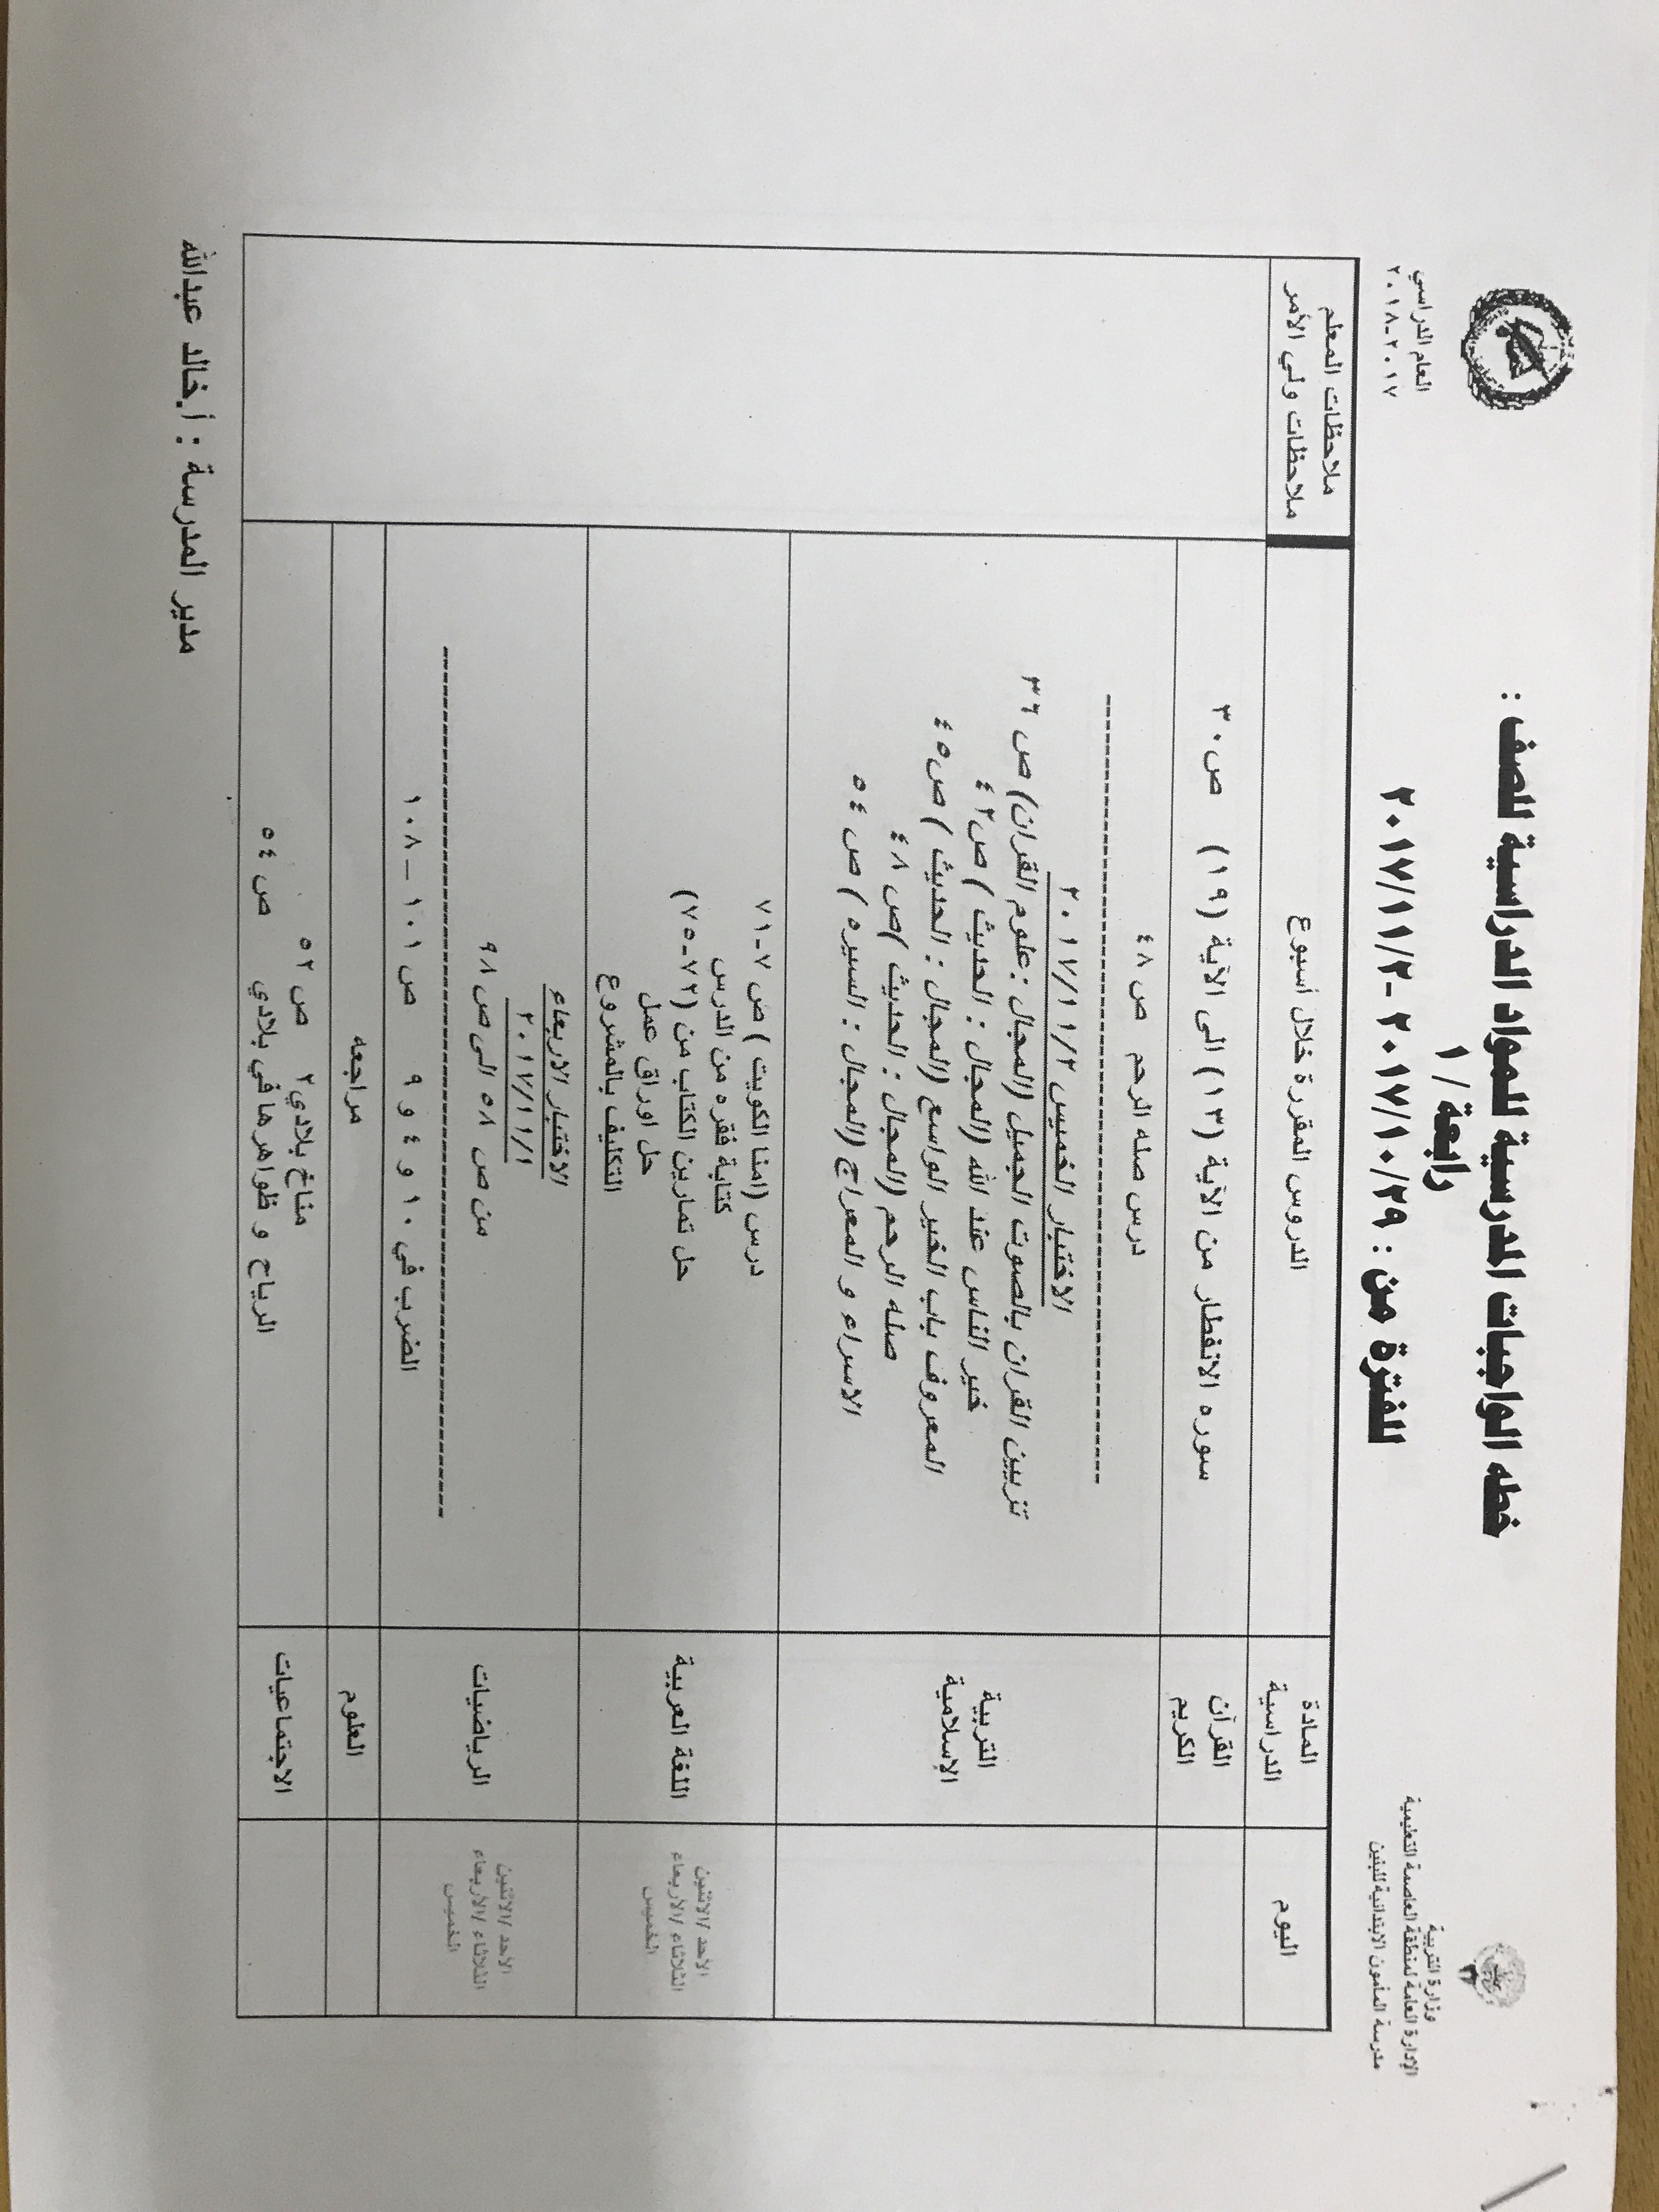 وزارة التربية
الإدارة العامة لمنطقة العاصمة التعليمية
مدرسة المأمون الابتدائية للبنين
خطه الواجبات المدرسية للمواد الدراسية للصف :
رابعة / ١
للفترة من : ٢٠١٧/١٠/٢٩ -٢٠١٧/١١/٢
العام الدراسي
٢٠١٧-٢٠١٨
اليوم
المادة
الدراسية
الدروس المقررة خلال أسبوع
ملاحظات المعلم
ملاحظات ولي الأمر
القرآن
الكريم
سوره الانفطار من الآية (١٣) الى الآية (١٩) ص٣٠
التربية
الإسلامية
درس صله الرحم ص ٤٨
الاختبار الخميس ٢٠١٧/١١/٢
تزيين القران بالصوت الجميل (المجال :علوم القران) ص ٣٦
خير الناس عند الله (المجال : الحديث ) ص٤٢
المعروف باب الخير الواسع (المجال : الحديث ) ص٤٥
صله الرحم (المجال : الحديث )ص ٤٨
الاسراء و المعراج (المجال : السيره ) ص ٥٤
الأحد /الاثنين
الثلاثاء /الأربعاء
الخميس
اللغة العربية
درس (امنا الكويت ) ص ٧-٧١
كتابة فقره من الدرس
حل تمارين الكتاب من (٧٢-٧٥)
حل اوراق عمل
التكليف بالمشروع
الأحد /الاثنين
الثلاثاء /الأربعاء
الخميس
الرياضيات
الاختبار الاربعاء
٢٠١٧/١١/١
من ص ٥٨ الى ص ٩٨
الضرب في ١٠ و ٤ و ٩ ص ١٠١ – ١٠٨
العلوم
مراجعه
الاجتماعيات
مناخ بلادي٢ ص ٥٢
الرياح و ظواهرها في بلادي ص ٥٤
مدير المدرسة : أ.خالد عبدالله